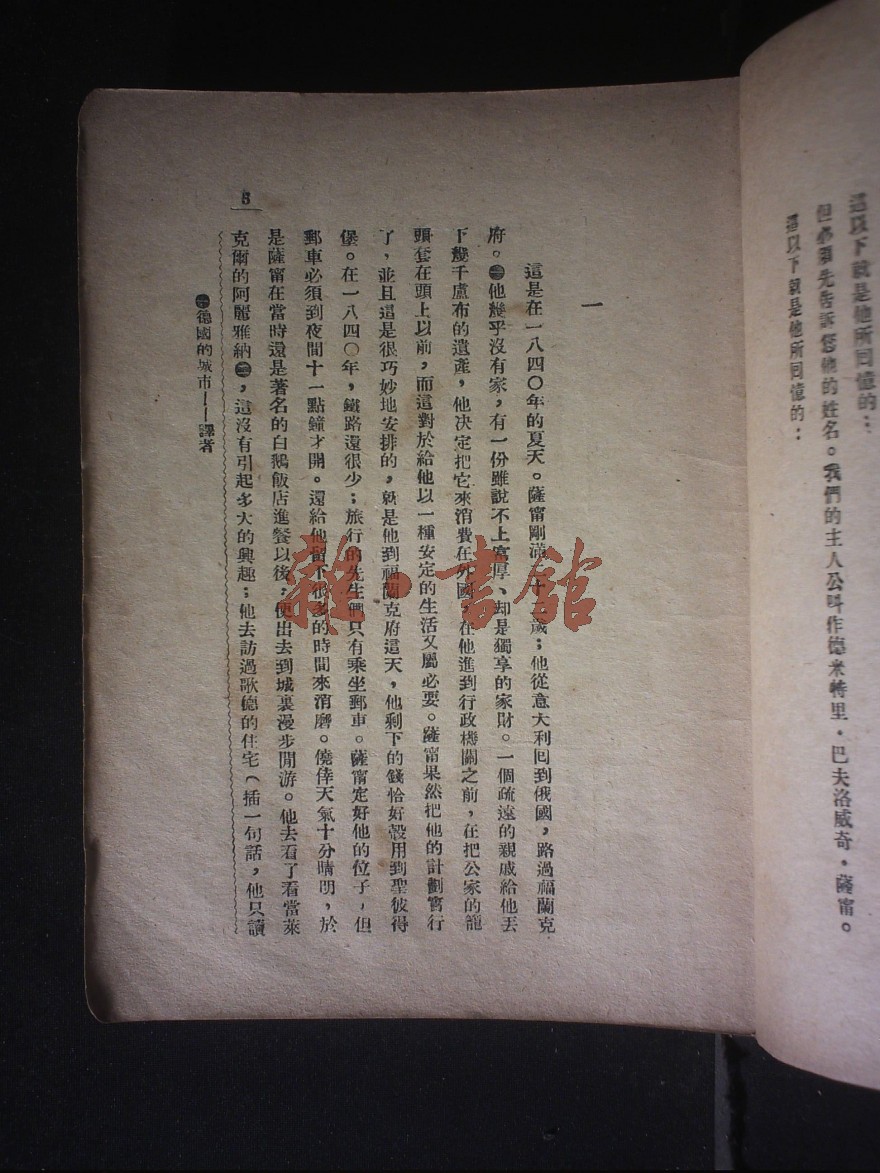 但必須先告訴您他的姓名。我們的主人公叫作德米特里．巴夫洛威奇．薩甯。
這以下就是他所回憶的：
一
這是在一八四〇年的夏天。薩甯剛滿二十二歲；他從意大利囘到俄國，路過福蘭克
府。㊁他幾乎沒有家，有一份雖說不上富厚、却是獨享的家財。一個疏遠的親戚給他丟
下幾千盧布的遺產，他決定把它來消費在外國，在他進到行政機關之前，在把公家的籠
頭套在頭上以前，而這對於給他以一種安定的生活又屬必要。薩甯果然把他的計劃實行
了，並且這是很巧妙地安排的，就是他到福蘭克府這天，他剩下的錢恰好彀用到聖彼得
堡。在一八四〇年，鐵路還很少；旅行的先生們只有乘坐郵車。薩甯定好他的位子，但
郵車必須到夜間十一點鐘才開。還給他留下很多的時間來消磨。僥倖天氣十分晴明，於
是薩甯在當時還是著名的白鵝飯店進餐以後，便出去到城裏漫步閒游。他去看了看當萊
克爾的阿麗雅納㊂，這沒有引起多大的興趣；他去訪過歌德的住宅（插一句話，他只讀
㊁德國的城市——譯者
雜·書館